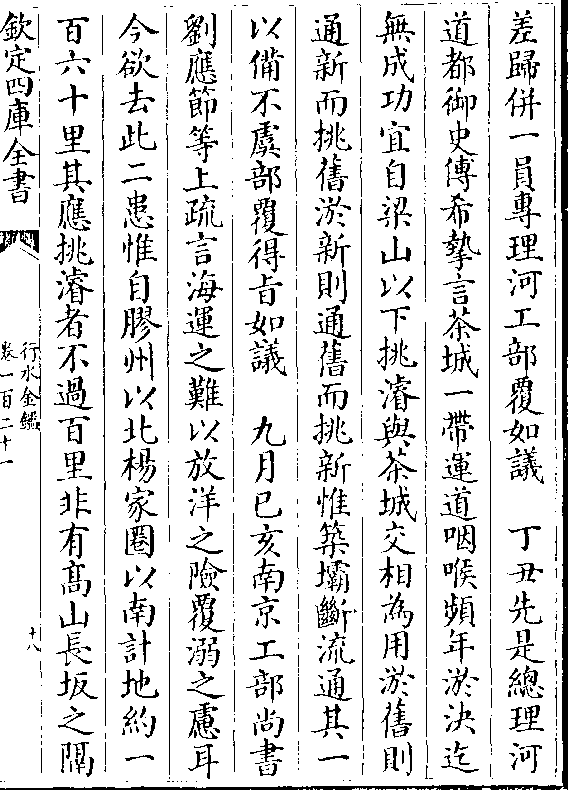 差歸併一員專理河工部覆如議　丁丑先是總理河
道都御史傅希摯言茶城一帶運道咽喉頻年淤決迄
無成功宜自梁山以下挑濬與茶城交相為用淤舊則
通新而挑舊淤新則通舊而挑新惟築壩斷流通其一
以備不虞部覆得旨如議　九月已亥南京工部尚書
劉應節等上疏言海運之難以放洋之險覆溺之慮耳
今欲去此二患惟自膠州以北楊家圈以南計地約一
百六十里其應挑濬者不過百里非有髙山長坂之隔
欽定四庫全書
行水金鑑
卷一百二十一
十八